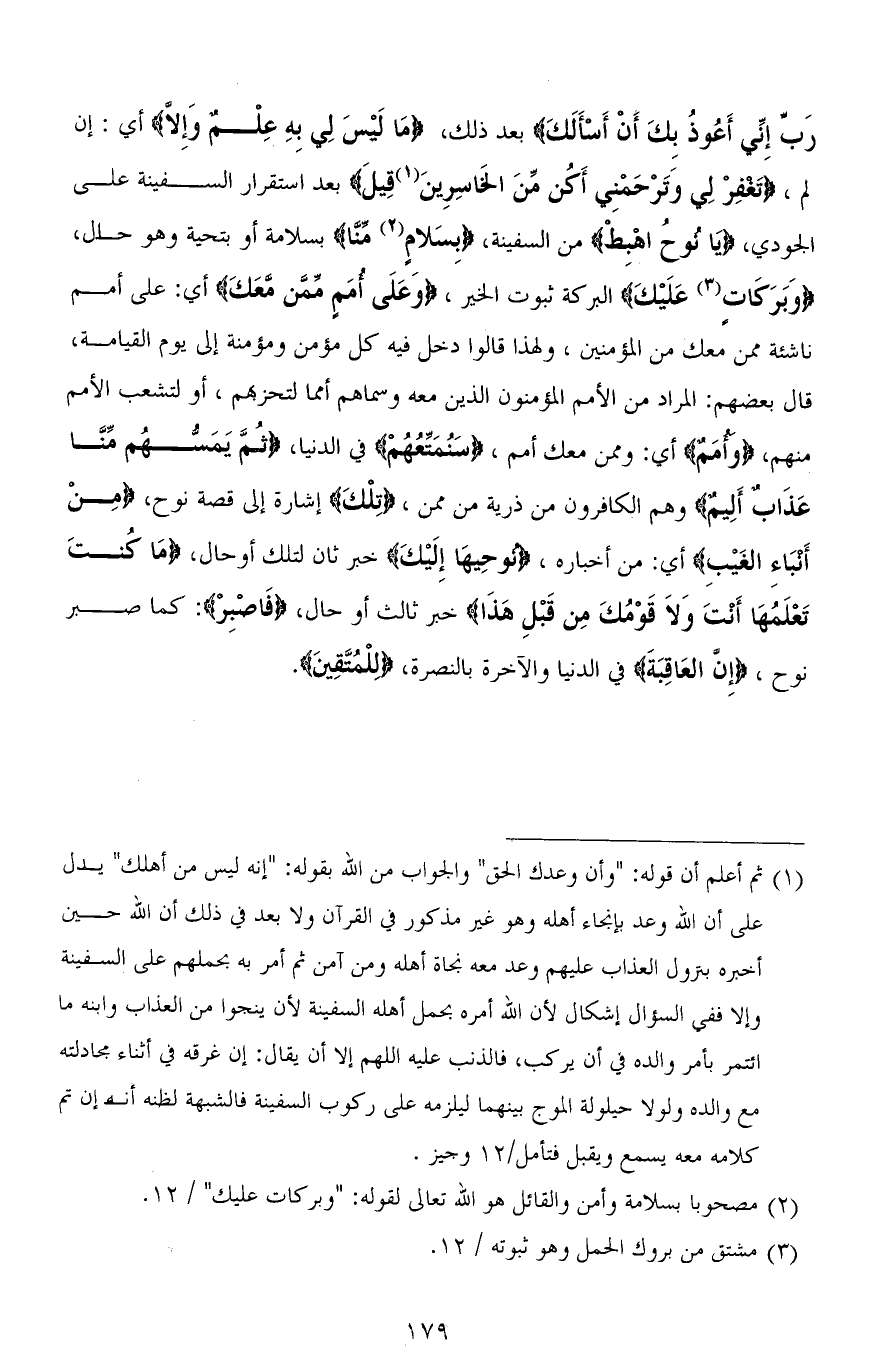 رَبِّ إِنِّي أَعُوذُ بِكَ أَنْ أَسْأَلَكَ﴾ بعد ذلك، ﴿مَا لَيْسَ لِي بِهِ عِلْـــمٌ وَإِلاَّ﴾ أي : إن
لم ، ﴿تَغْفِرْ لِي وَتَرْحَمْنِي أَكُن مِّنَ الخَاسِرِينَ(١)قِيلَ﴾ بعد استقرار الســـفينة علـــى
الجودي، ﴿يَا نُوحُ اهْبِطْ﴾ من السفينة، ﴿بِسَلامٍ(٢) مِّنَّا﴾ بسلامة أو بتحية وهو حــلال،
﴿وَبَرَكَاتٍ(٣) عَلَيْكَ﴾ البركة ثبوت الخير ، ﴿وَعَلَى أُمَمٍ مِّمَّن مَّعَكَ﴾ أي: على أمــم
ناشئة ممن معك من المؤمنين ، ولهذا قالوا دخل فيه كل مؤمن ومؤمنة إلى يوم القيامــة،
قال بعضهم: المراد من الأمم المؤمنون الذين معه وسماهم أمما لتحزبهم ، أو لتشعب الأمم
منهم، ﴿وَأُمَمٌ﴾ أي: وممن معك أمم ، ﴿سَنُمَتِّعُهُمْ﴾ في الدنيا، ﴿ثُمَّ يَمَسُّـــهُم مِّنَّـــا
عَذَابٌ أَلِيمٌ﴾ وهم الكافرون من ذرية من ممن ، ﴿تِلْكَ﴾ إشارة إلى قصة نوح، ﴿مِـــنْ
أَنْبَاءِ الغَيْبِ﴾ أي: من أخباره ، ﴿نُوحِيهَا إِلَيْكَ﴾ خبر ثان لتلك أوحال، ﴿مَا كُنـــتَ
تَعْلَمُهَا أَنْتَ وَلاَ قَوْمُكَ مِن قَبْلِ هَذَا﴾ خبر ثالث أو حال، ﴿فَاصْبِرْ﴾: كما صـــبر
نوح ، ﴿إِنَّ العَاقِبَةَ﴾ في الدنيا والآخرة بالنصرة، ﴿لِلْمُتَّقِينَ﴾.
(١) ثم أعلم أن قوله: "وأن وعدك الحق" والجواب من الله بقوله: "إنه ليس من أهلك" يــدل
على أن الله وعد بإنجاء أهله وهو غير مذكور في القرآن ولا بعد في ذلك أن الله حـــين
أخبره بنزول العذاب عليهم وعد معه نجاة أهله ومن آمن ثم أمر به بحملهم على الســفينة
وإلا ففي السؤال إشكال لأن الله أمره بحمل أهله السفينة لأن ينجوا من العذاب وابنه ما
ائتمر بأمر والده في أن يركب، فالذنب عليه اللهم إلا أن يقال: إن غرقه في أثناء مجادلته
مع والده ولولا حيلولة الموج بينهما ليلزمه على ركوب السفينة فالشبهة لظنه أنــه إن تم
كلامه معه يسمع ويقبل فتأمل/١٢ وجيز .
(٢) مصحوبا بسلامة وأمن والقائل هو الله تعالى لقوله: "وبركات عليك" / ١٢.
(٣) مشتق من بروك الحمل وهو ثبوته / ١٢.
١٧٩